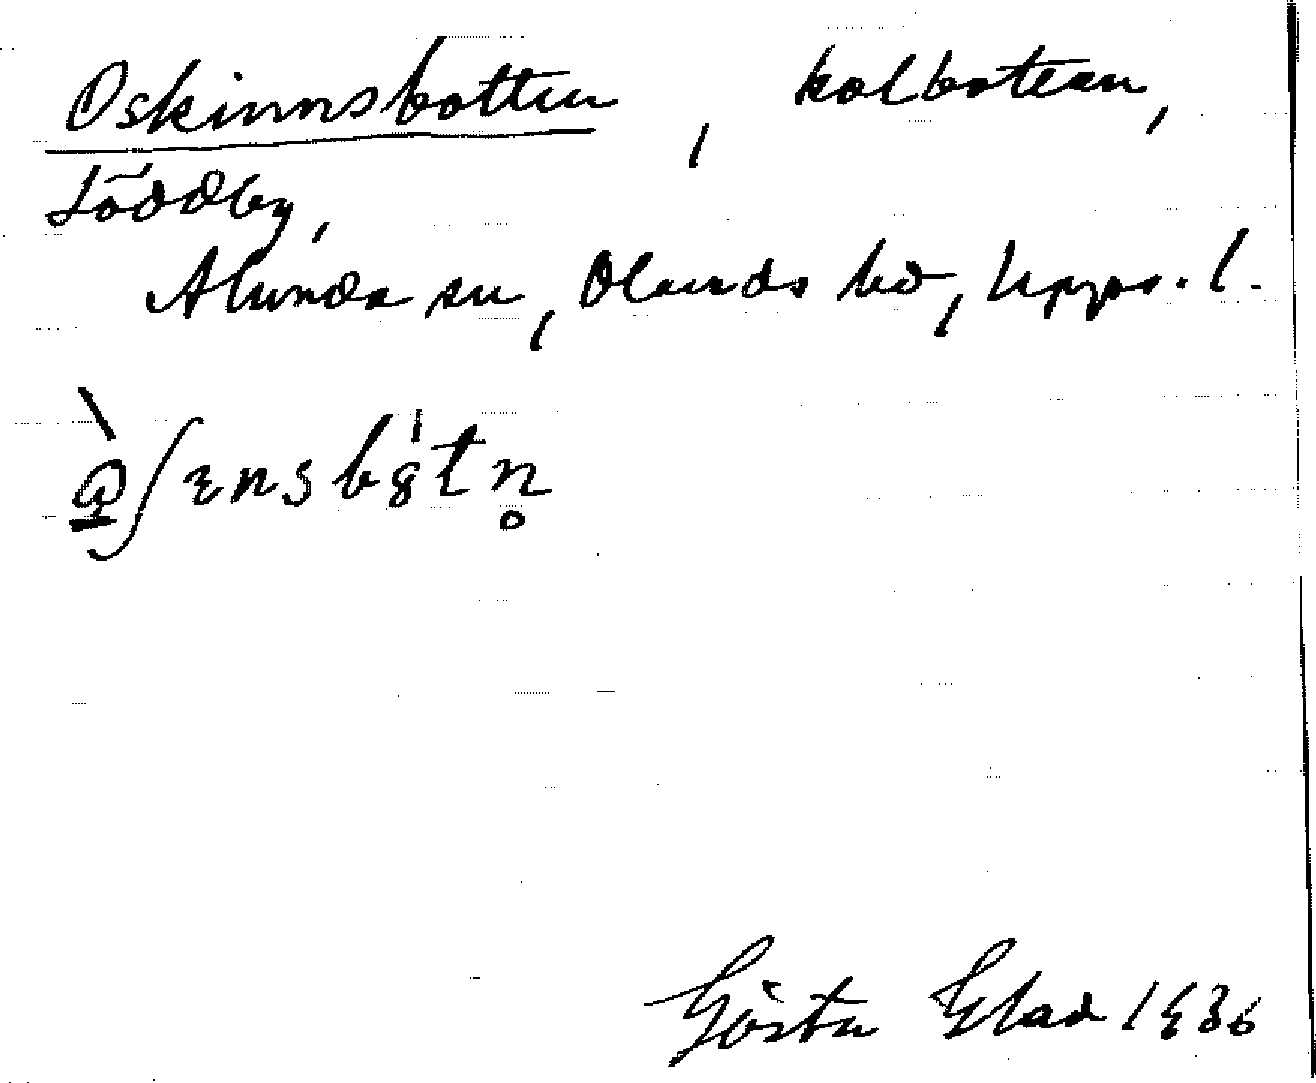 Oskinnsbotten, kolbotten,
Löddby,
Alunda sn, Olands hd, Upps. l.
Gösta Elad 1936